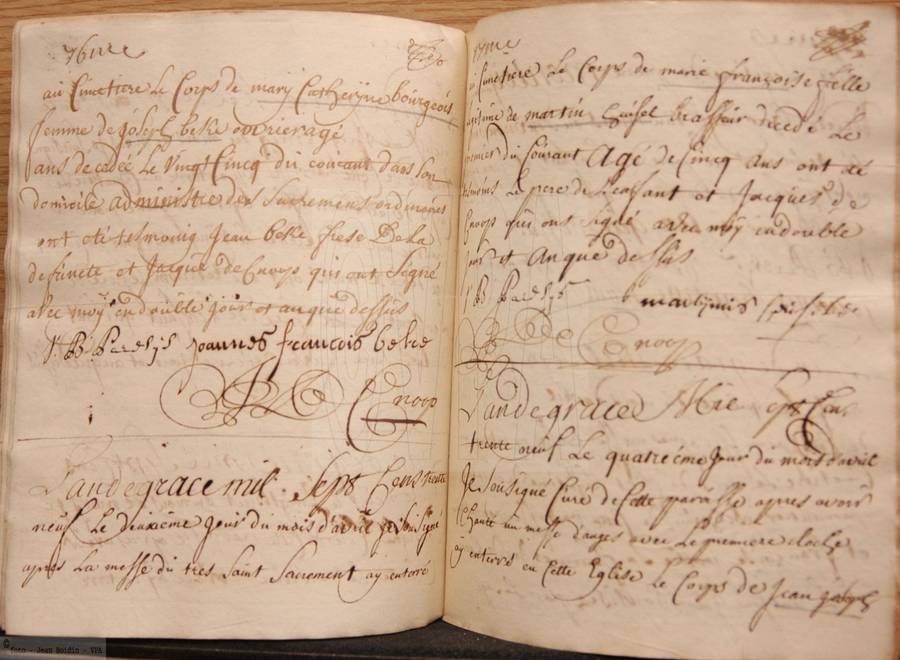 76me
au Cimetiere le Corps de mary Catheryne bourgeois
femme de Joseph beke ouvrier agé
ans decedé le vingt Cinq du courant dans son
domicile administre des sacrements ordinaires
ont été tesmoing Jean beke frere De la
defuncte et Jacque de Cnoop qui ont signé
avec moy en double jour et an que dessus
joannes francois beke
Cnoop
L'an de grace mil Sept Cens trente
neuf le deuxiéme jour du mois d'avril je sousigné
apres la messe du tres Saint Sacrement ay enterré
cimetiere le Corps de marie françoise
de martin brasseur decedé le
premier du Courant Agé de Cinq ans ont été
tesmoins le pere de l'enfant et Jacques de
Cnoop qui ont signé avec moy en double
jour et an que dessus
De Cnoop
L'an de grace Mil sept Cens
trente neuf le quatriéme jour du mois d'avril
Je sousigné Curé de Cette paroisse apres avoir
Chanté un messe d'anges avec le premiere cloche
ay enterré en Cette Eglise le Corps de Jean
foto - Jean Boidin - VPA